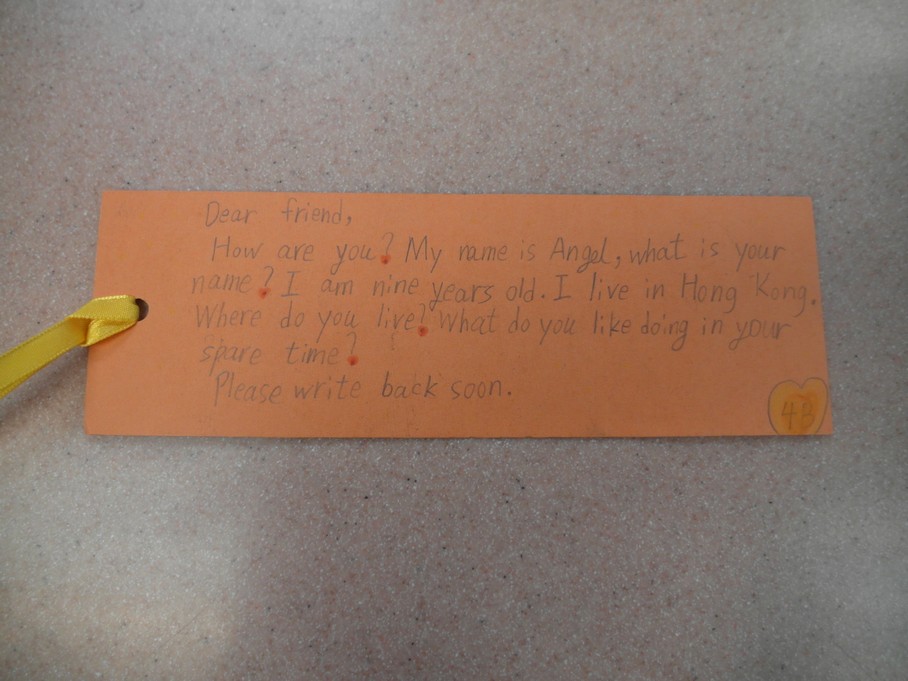 Dear friend,
How are you? My name is Angel, what is your
name? I am nine years old. I live in Hong Kong.
Where do you live? What do you like doing in your
spare time?
Please write back soon.
4B